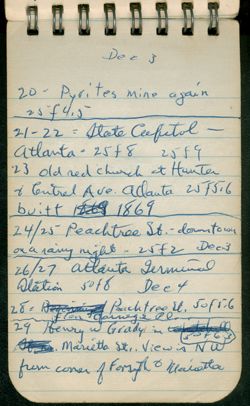 Dec 3
20 - Pyrites mine again
25 f 4.5
21-22 = State Capitol -
Atlanta - 25 f 8 25 f 9
23 old red church at Hunter
& Central Ave. Atlanta 25 f 5.6
built 1869
24/25 Peachtree St. - downtown
on a rainy night - 25 f 2 Dec 3
26/27 Atlanta Terminal
Station 50 f 8 Dec 4
28 = Peachtree St. 50 f 5.6
from
29 Henry W Grady in
Marietta St., View is NW
from corner of Forsyth & Marietta